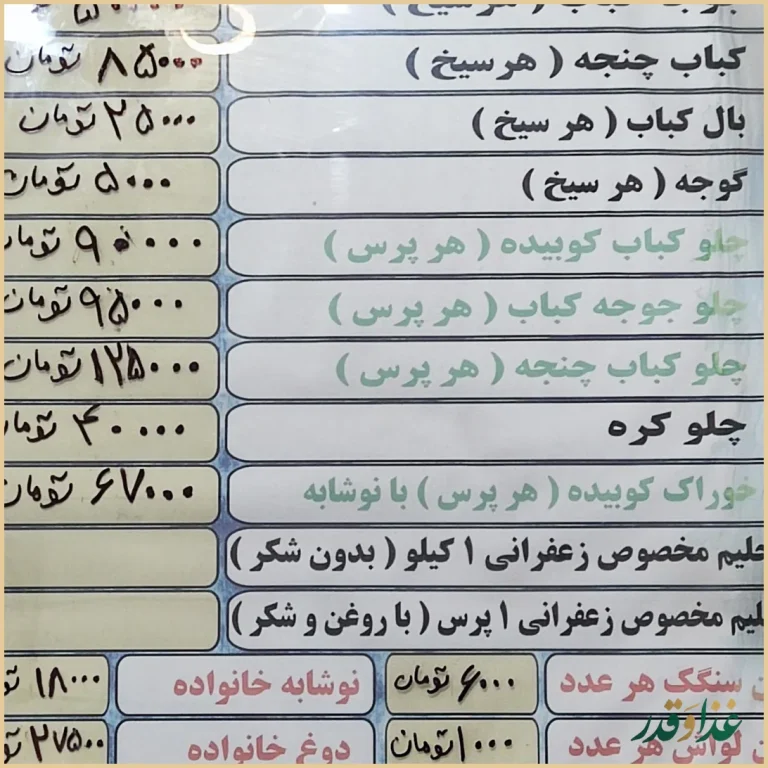 کباب چنجه ( هر سیخ ) ۸۵۰۰۰ تومان
بال کباب ( هر سیخ ) ۲۵۰۰۰ تومان
گوجه ( هر سیخ ) ۵۰۰۰ تومان
چلو کباب کوبیده ( هر پرس ) ۹۰۰۰۰ تومان
چلو جوجه کباب ( هر پرس ) ۹۵۰۰۰ تومان
چلو کباب چنجه ( هر پرس ) ۱۲۵۰۰۰ تومان
چلو کره ۴۰۰۰۰ تومان
خوراک کوبیده ( هر پرس ) با نوشابه ۶۷۰۰۰ تومان
حلیم مخصوص زعفرانی ۱ کیلو ( بدون شکر )
حلیم مخصوص زعفرانی ۱ پرس ( با روغن و شکر )
سنگک هر عدد ۶۰۰۰ تومان نوشابه خانواده ۱۸۰۰۰
لواش هر عدد ۱۰۰۰ تومان دوغ خانواده ۲۷۵۰۰
غذا و قدر